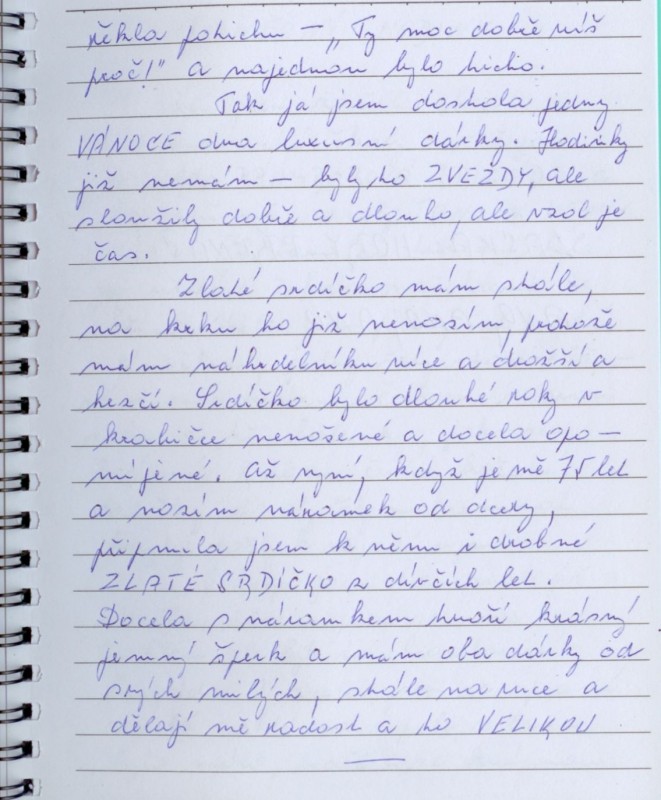 řekla potichu – „Ty moc dobře víš
proč!" a najednou bylo ticho.
Tak já jsem dostala jedny
VÁNOCE dva luxusní dárky. Hodinky
již nemám – byly to ZVĚZDY, ale
sloužily dobře a dlouho, ale vzal je
čas.
Zlaté srdíčko mám stále,
na krku ho již nenosím, protože
mám náhrdelníku více a dražší a
hezčí. Srdíčko bylo dlouhé roky v
krabičce nenošené a docela opo-
míjené. Až nyní, když je mě 75 let
a nosím náramek od dcery,
připnula jsem k němu i drobné
ZLATÉ SRDÍČKO z dívčích let.
Docela s náramkem tvoří krásný
jemný šperk a mám oba dárky od
svých milých, stále na ruce a
dělají mě radost a to VELIKOU